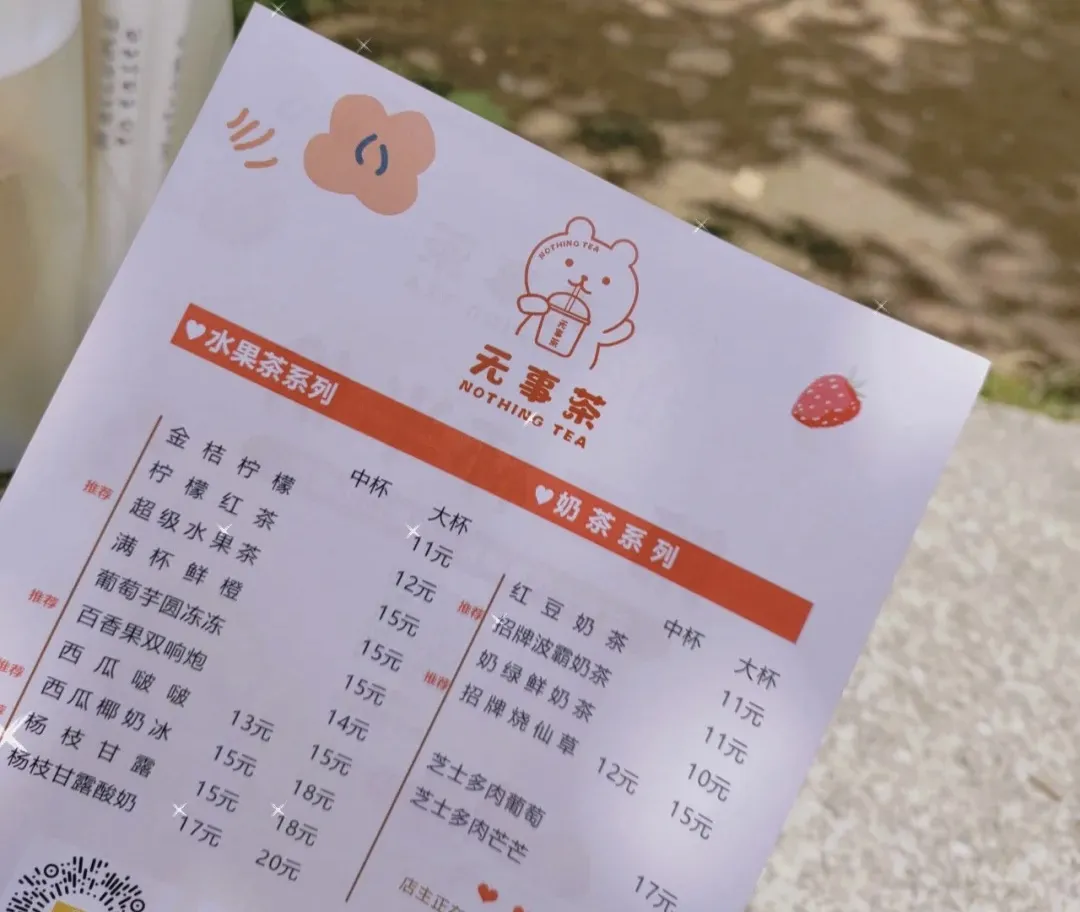 NOTHING TEA
无事茶
无事茶
NOTHING TEA
水果茶系列
中杯 大杯
金桔柠檬 11元
推荐 柠檬红茶 12元
超级水果茶 15元
满杯鲜橙 15元
推荐 葡萄芋圆冻冻 15元
百香果双响炮 14元
推荐 西瓜啵啵 13元 15元
西瓜椰奶冰 15元 18元
杨枝甘露 15元 18元
杨枝甘露酸奶 17元 20元
奶茶系列
中杯 大杯
红豆奶茶 11元
推荐 招牌波霸奶茶 11元
奶绿鲜奶茶 10元
推荐 招牌烧仙草 12元 15元
芝士多肉葡萄 17元
芝士多肉芒芒
店主正在